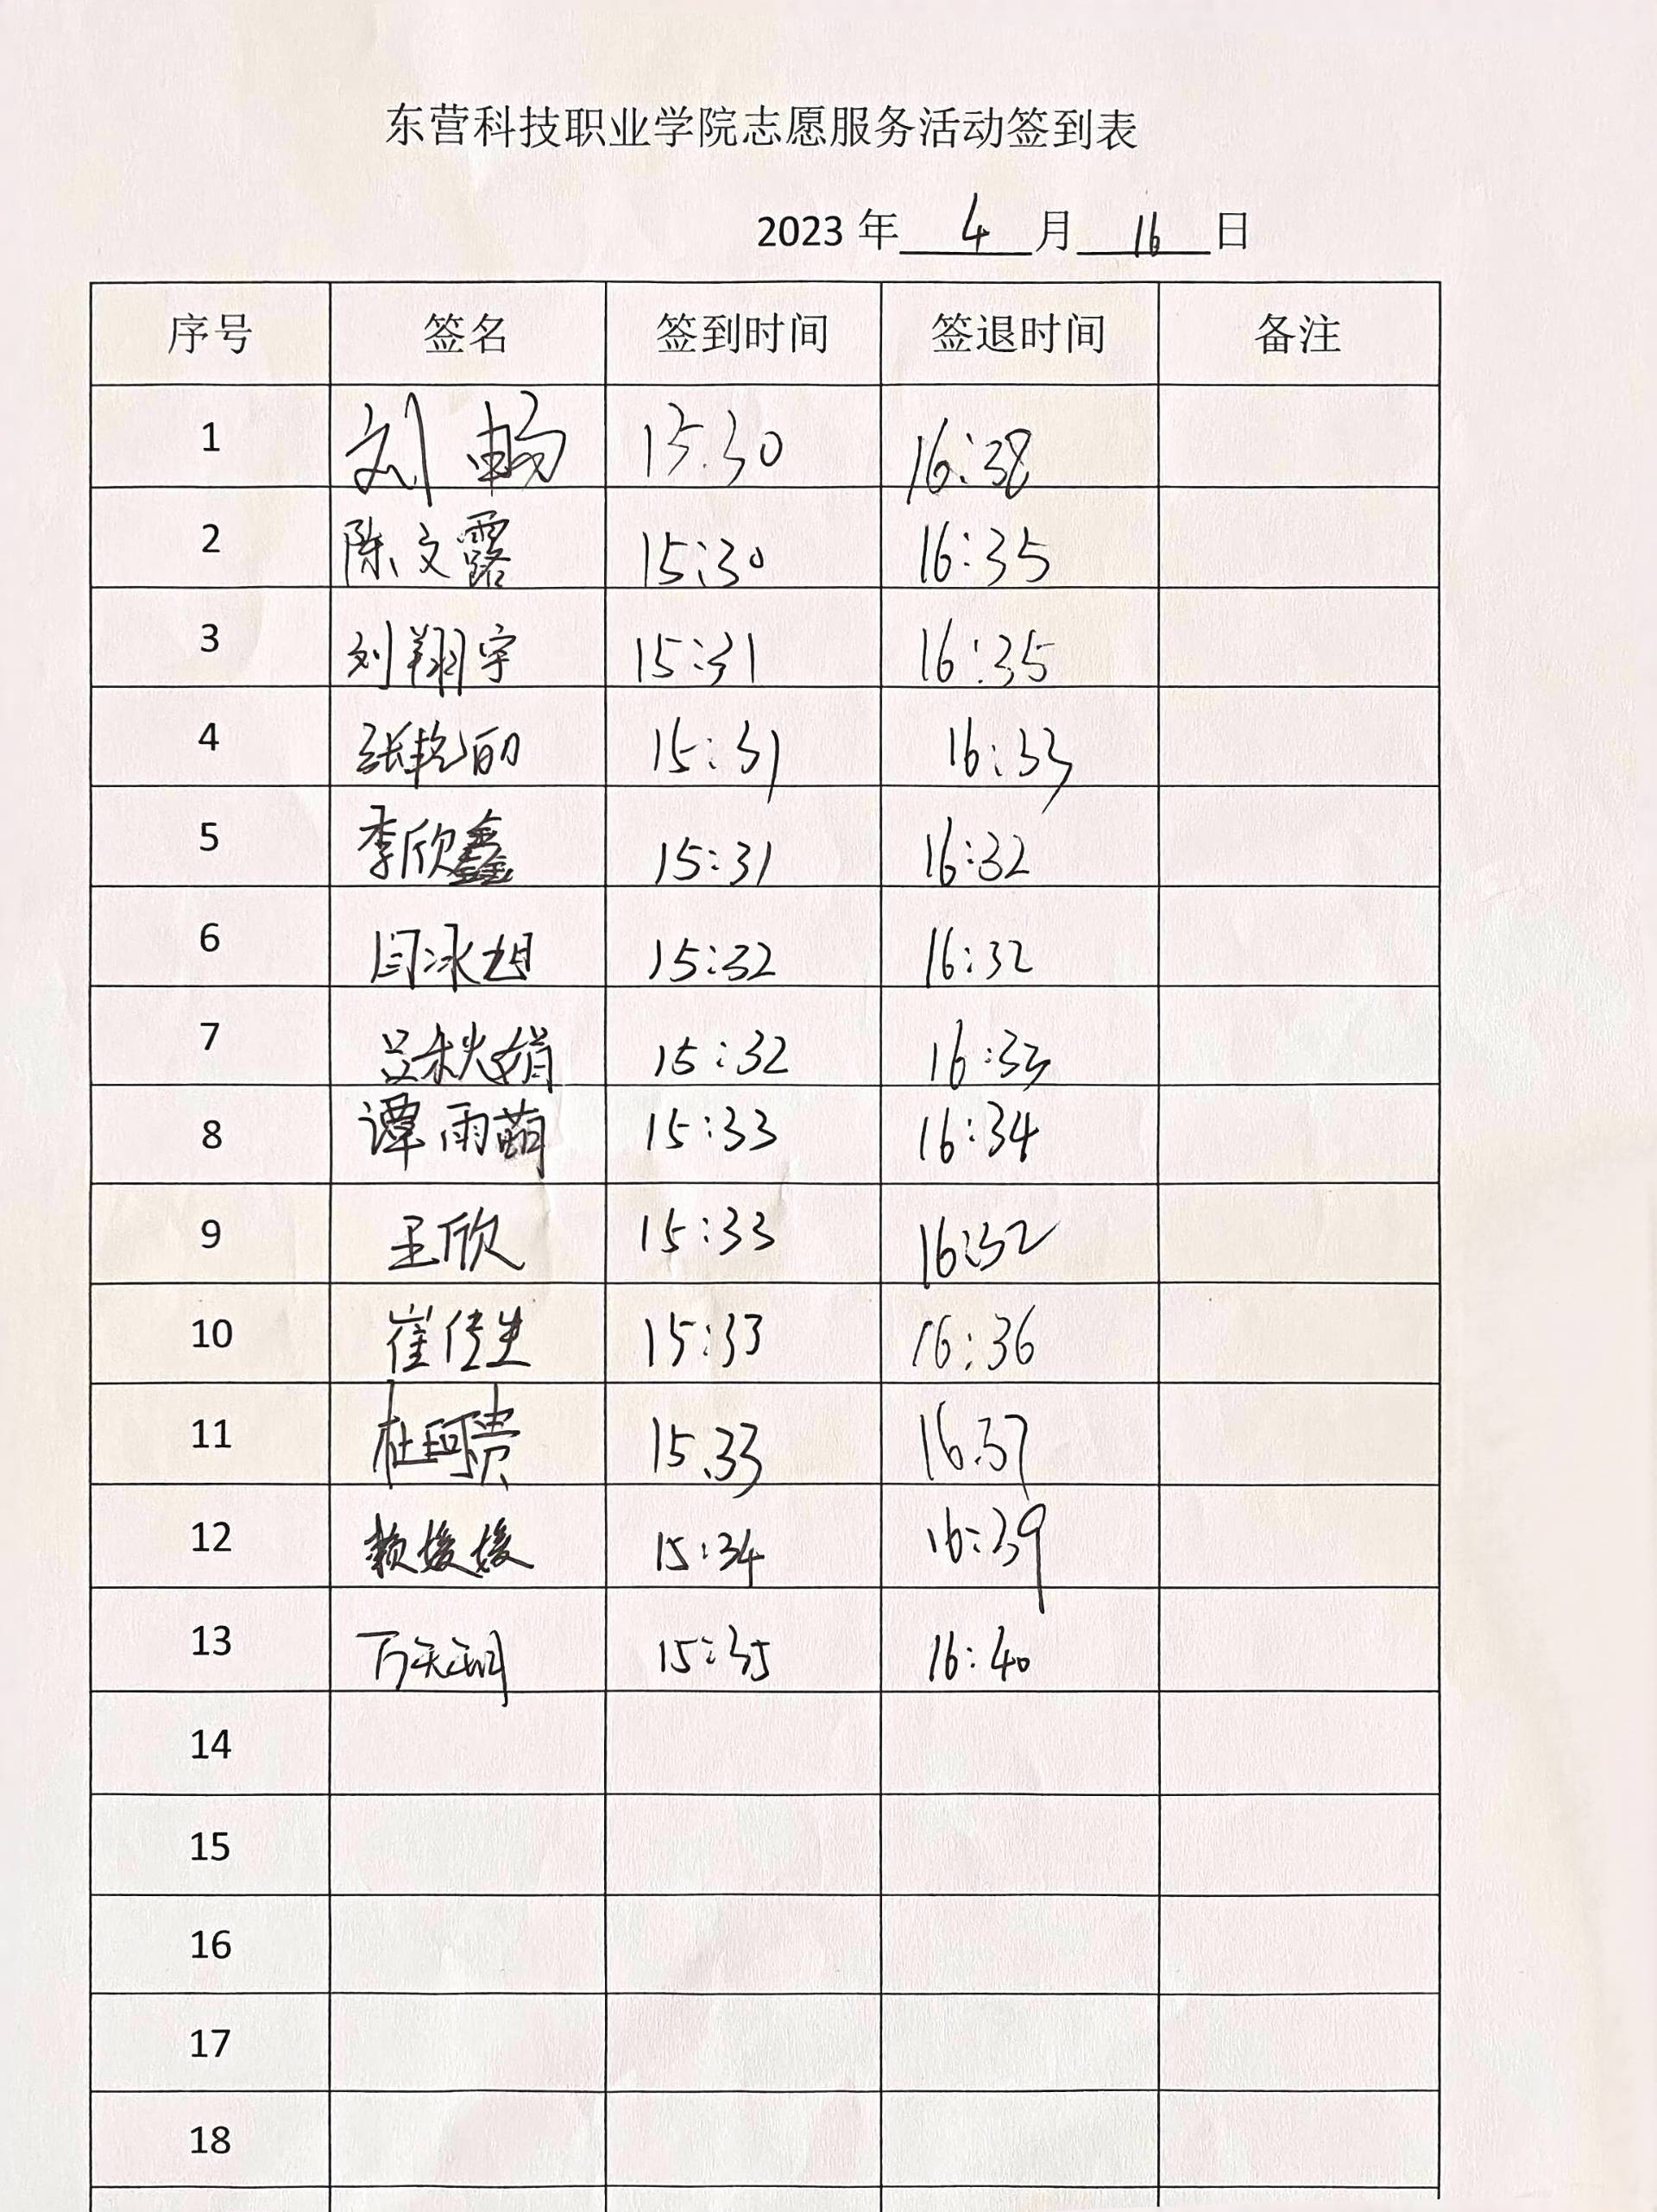 东营科技职业学院志愿服务活动签到表
2023 年 4 月 16 日
序号 签名 签到时间 签退时间 备注
1 刘畅 15:30 16:38
2 陈文露 15:30 16:35
3 刘翔宇 15:31 16:35
4 15:31 16:33
5 李欣鑫 15:31 16:32
6 闫冰旭 15:32 16:32
7 吕秋娟 15:32 16:33
8 谭雨萌 15:33 16:34
9 王欣 15:33 16:32
10 崔传生 15:33 16:36
11 15.33 16.37
12 赖媛媛 15:34 16:39
13 15:35 16:40
14
15
16
17
18